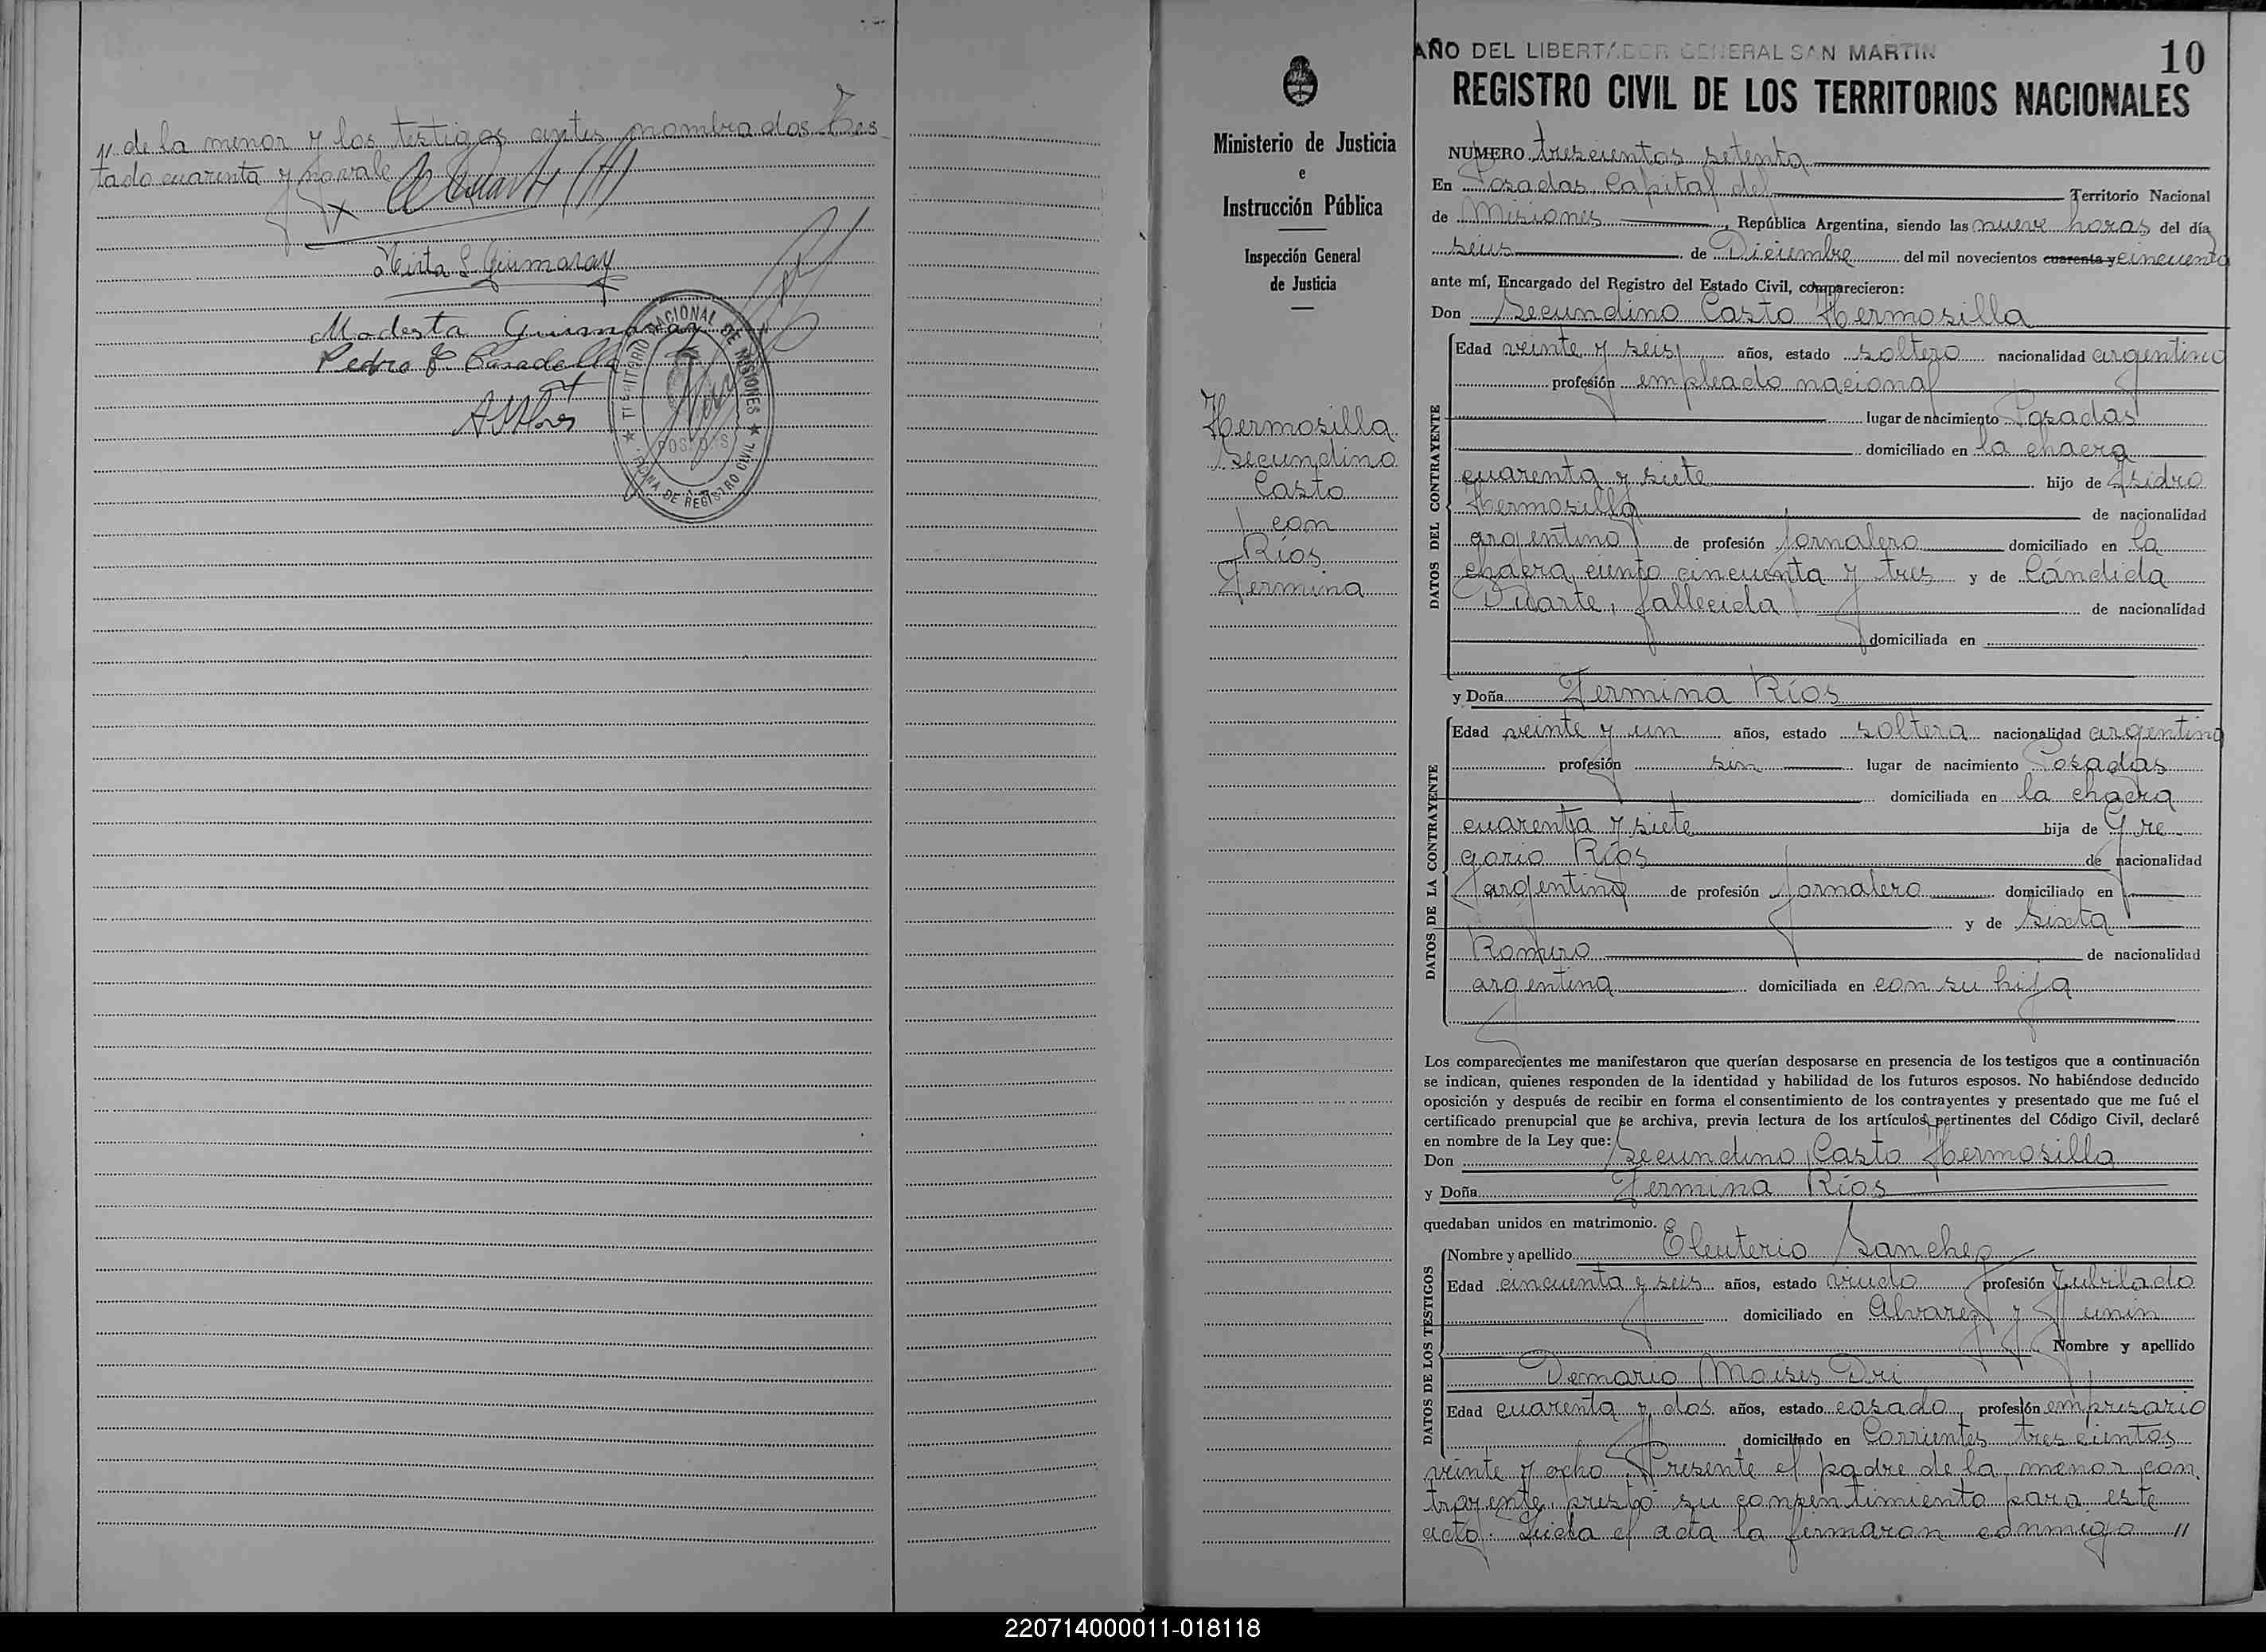 " de la menor y los testigos antes nombrados Tes-
tado cuarenta y no vale
Mirta L Guimaray
Modesta Guimaray
TERRITORIO NACIONAL DE MISIONES
POSADAS
DE REGISTRO CIVIL
10
AÑO DEL LIBERTADOR GENERAL SAN MARTIN
REGISTRO CIVIL DE LOS TERRITORIOS NACIONALES
Ministerio de Justicia
e
Instrucción Pública
Inspección General
de Justicia
Hermosilla
Secundino
Casto
con
Ríos
Fermina
NUMERO trescientos setenta
En Posadas Capital del Territorio Nacional
de Misiones, República Argentina, siendo las nueve horas del día
seis de Diciembre del mil novecientos cuarenta y cincuenta
ante mí, Encargado del Registro del Estado Civil, comparecieron:
Don Secundino Casto Hermosilla
DATOS DEL CONTRAYENTE
Edad veinte y seis años, estado soltero nacionalidad argentino
profesión empleado nacional
lugar de nacimiento Posadas
domiciliado en la chacra
cuarenta y siete hijo de Isidro
Hermosilla de nacionalidad
argentino de profesión jornalero domiciliado en la
chacra ciento cincuenta y tres y de Cándida
Duarte, fallecida de nacionalidad
domiciliada en
y Doña Fermina Ríos
DATOS DE LA CONTRAYENTE
Edad veinte y un años, estado soltera nacionalidad argentina
profesión sin lugar de nacimiento Posadas
domiciliada en la chacra
cuarenta y siete hija de Gre
gorio Ríos de nacionalidad
argentino de profesión jornalero domiciliado en
y de Sixta
Romero de nacionalidad
argentina domiciliada en con su hija
Los comparecientes me manifestaron que querían desposarse en presencia de los testigos que a continuación
se indican, quienes responden de la identidad y habilidad de los futuros esposos. No habiéndose deducido
oposición y después de recibir en forma el consentimiento de los contrayentes y presentado que me fué el
certificado prenupcial que se archiva, previa lectura de los artículos pertinentes del Código Civil, declaré
en nombre de la Ley que:
Don Secundino Casto Hermosilla
y Doña Fermina Ríos
quedaban unidos en matrimonio.
DATOS DE LOS TESTIGOS
Nombre y apellido Eleuterio Sanchez
Edad cincuenta y seis años, estado viudo profesión Jubilado
domiciliado en Alvarez y Junin
Nombre y apellido
Demario Moises Dri
Edad cuarenta y dos años, estado casado profesión empresario
domiciliado en Corrientes trescientos
veinte y ocho. Presente el padre de la menor con
trayente prestó su consentimiento para este
acto. Leida el acta la firmaron conmigo "
220714000011-018118